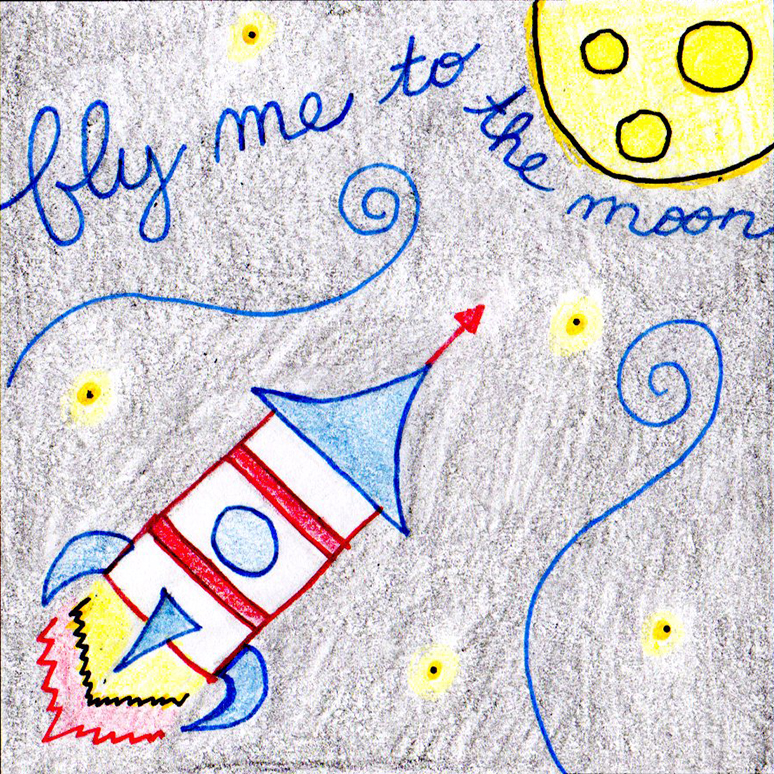 fly me to
the moon